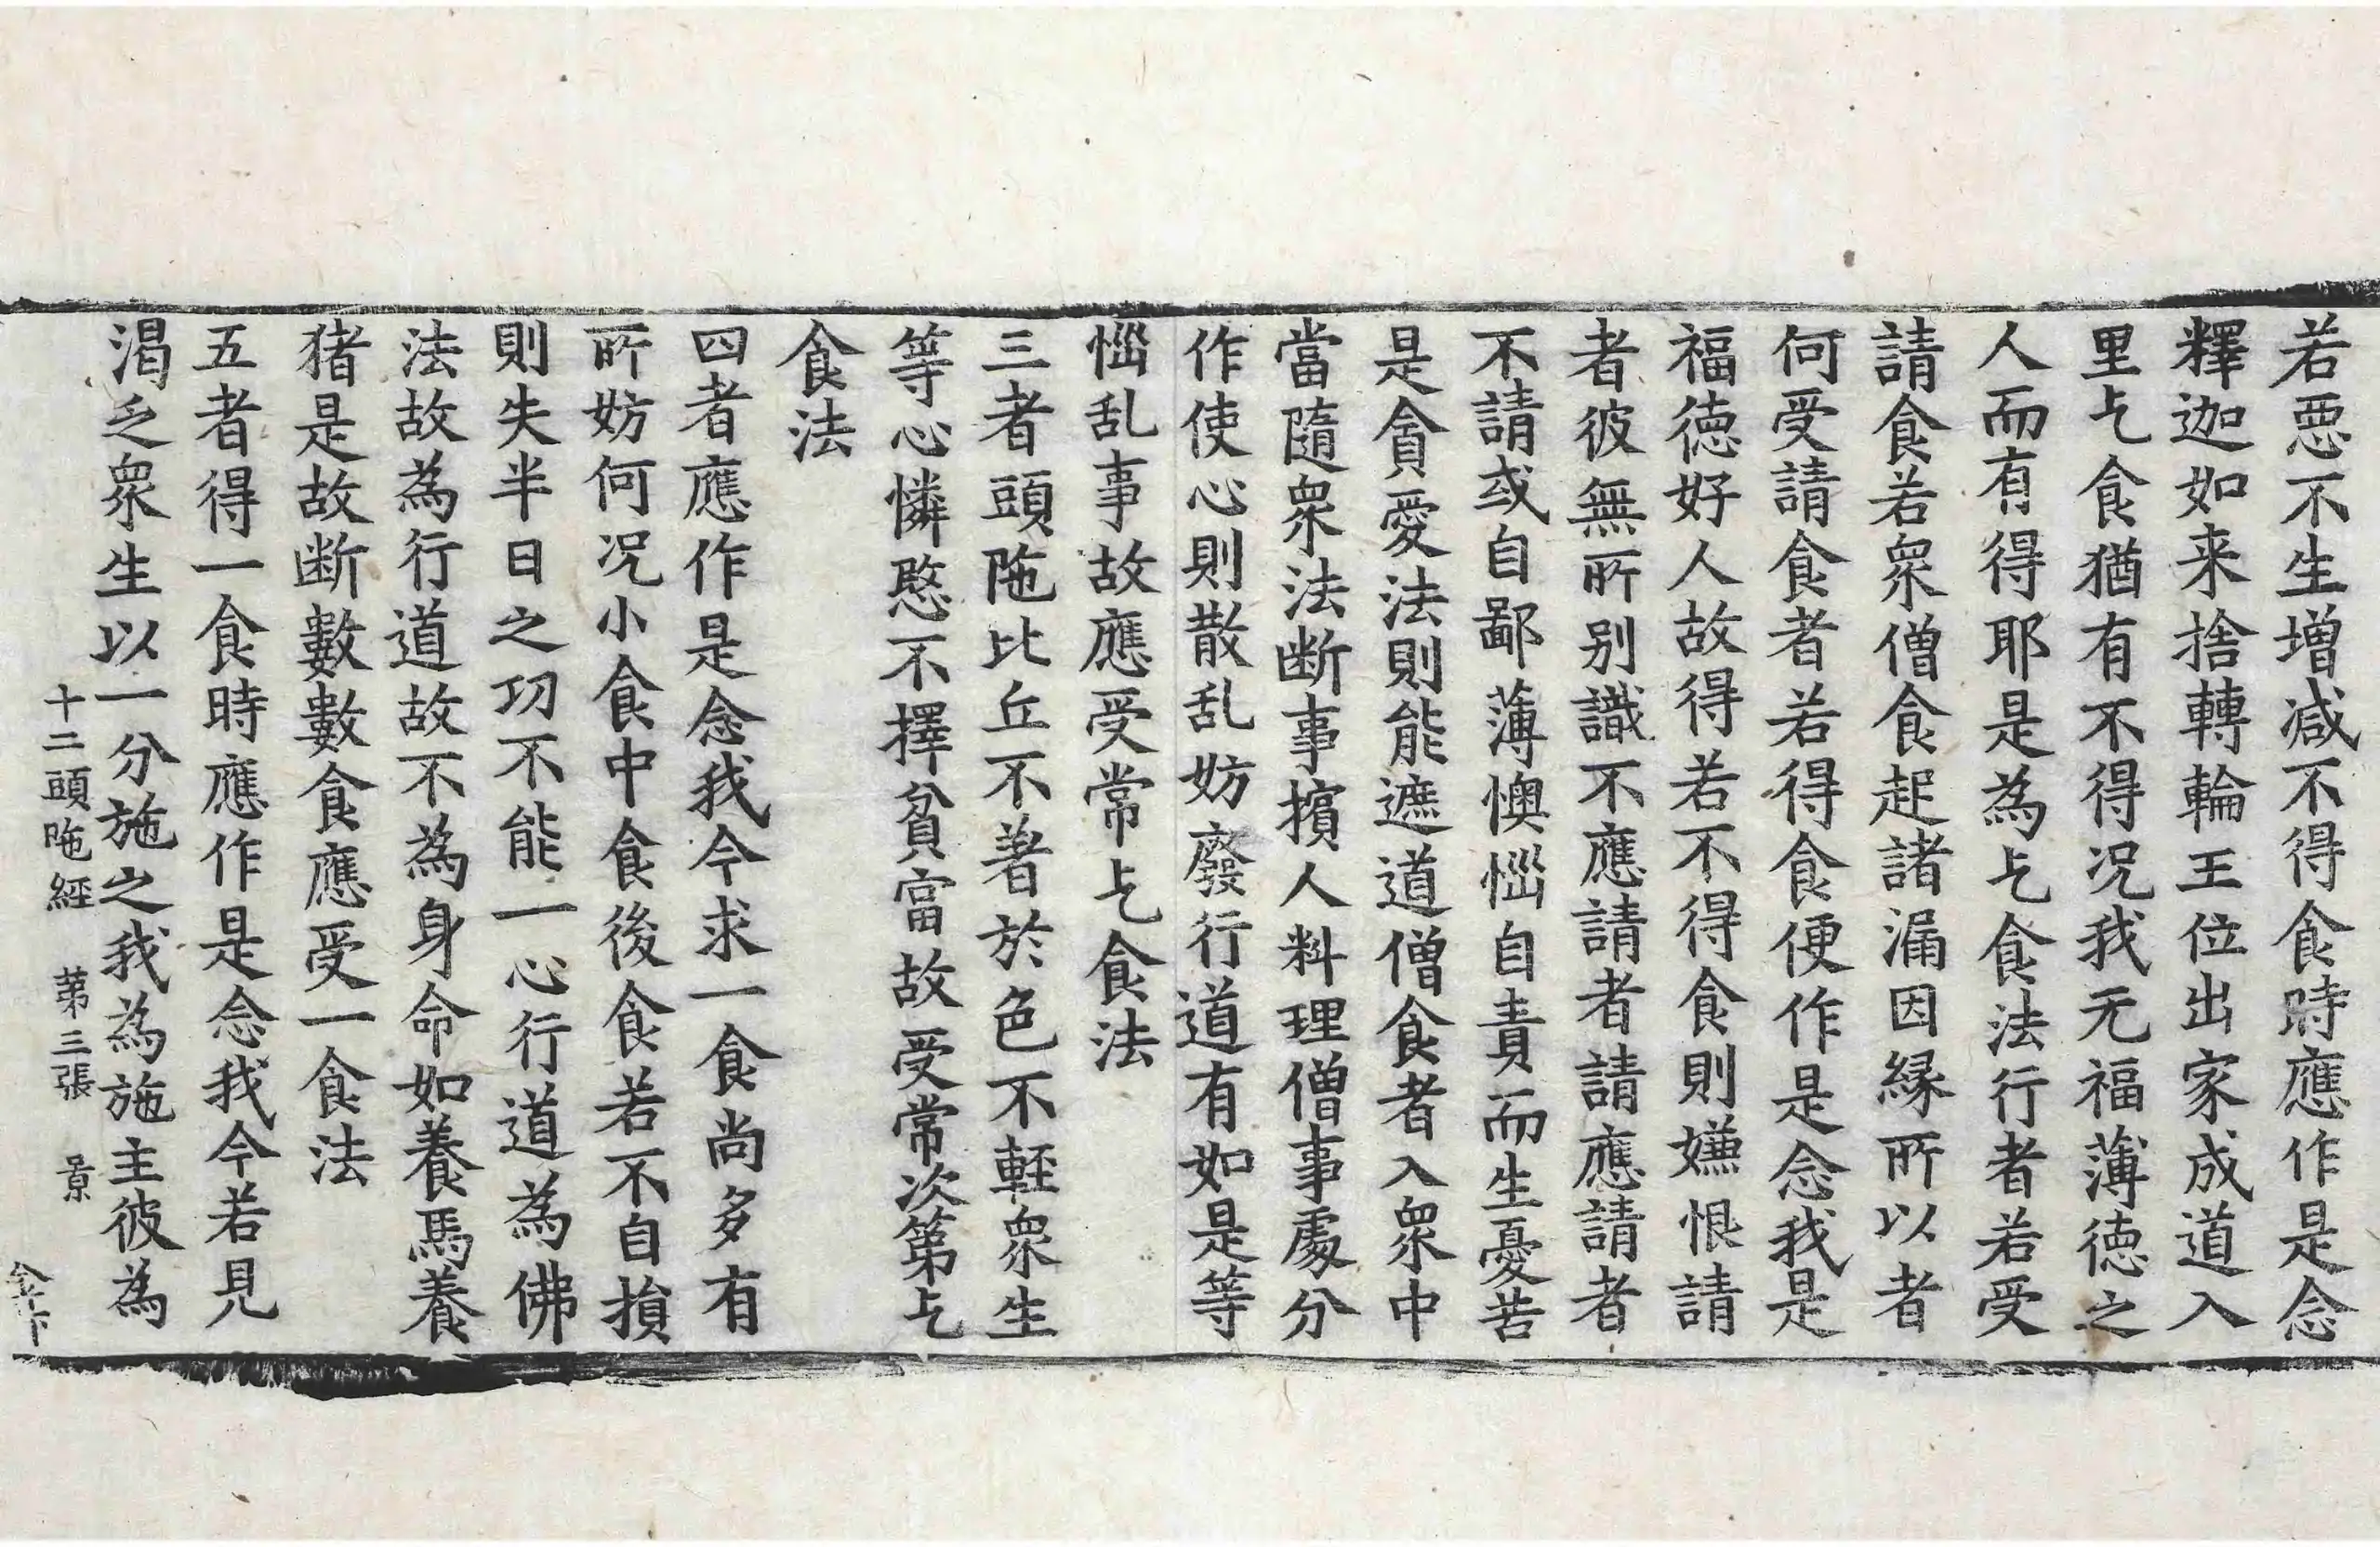 若惡不生增减不得食時應作是念
釋迦如来捨轉輪王位出家成道入
里乞食猶有不得况我无福薄徳之
人而有得耶是為乞食法行者若受
請食若衆僧食起諸漏因縁所以者
何受請食者若得食便作是念我是
福徳好人故得若不得食則嫌恨請
者彼無所别識不應請者請應請者
不請或自鄙薄懊惱自責而生憂苦
是貪愛法則能遮道僧食者入衆中
當隨衆法断事擯人料理僧事處分
作使心則散乱妨廢行道有如是等
惱乱事故應受常乞食法
三者頭陁比丘不著於色不輕衆生
等心憐愍不擇貧富故受常次第乞
食法
四者應作是念我今求一食尚多有
所妨何况小食中食後食若不自損
則失半日之功不能一心行道為佛
法故為行道故不為身命如養馬養
猪是故断數數食應受一食法
五者得一食時應作是念我今若見
渴乏衆生以一分施之我為施主彼為
十二頭陁經 第三張 景